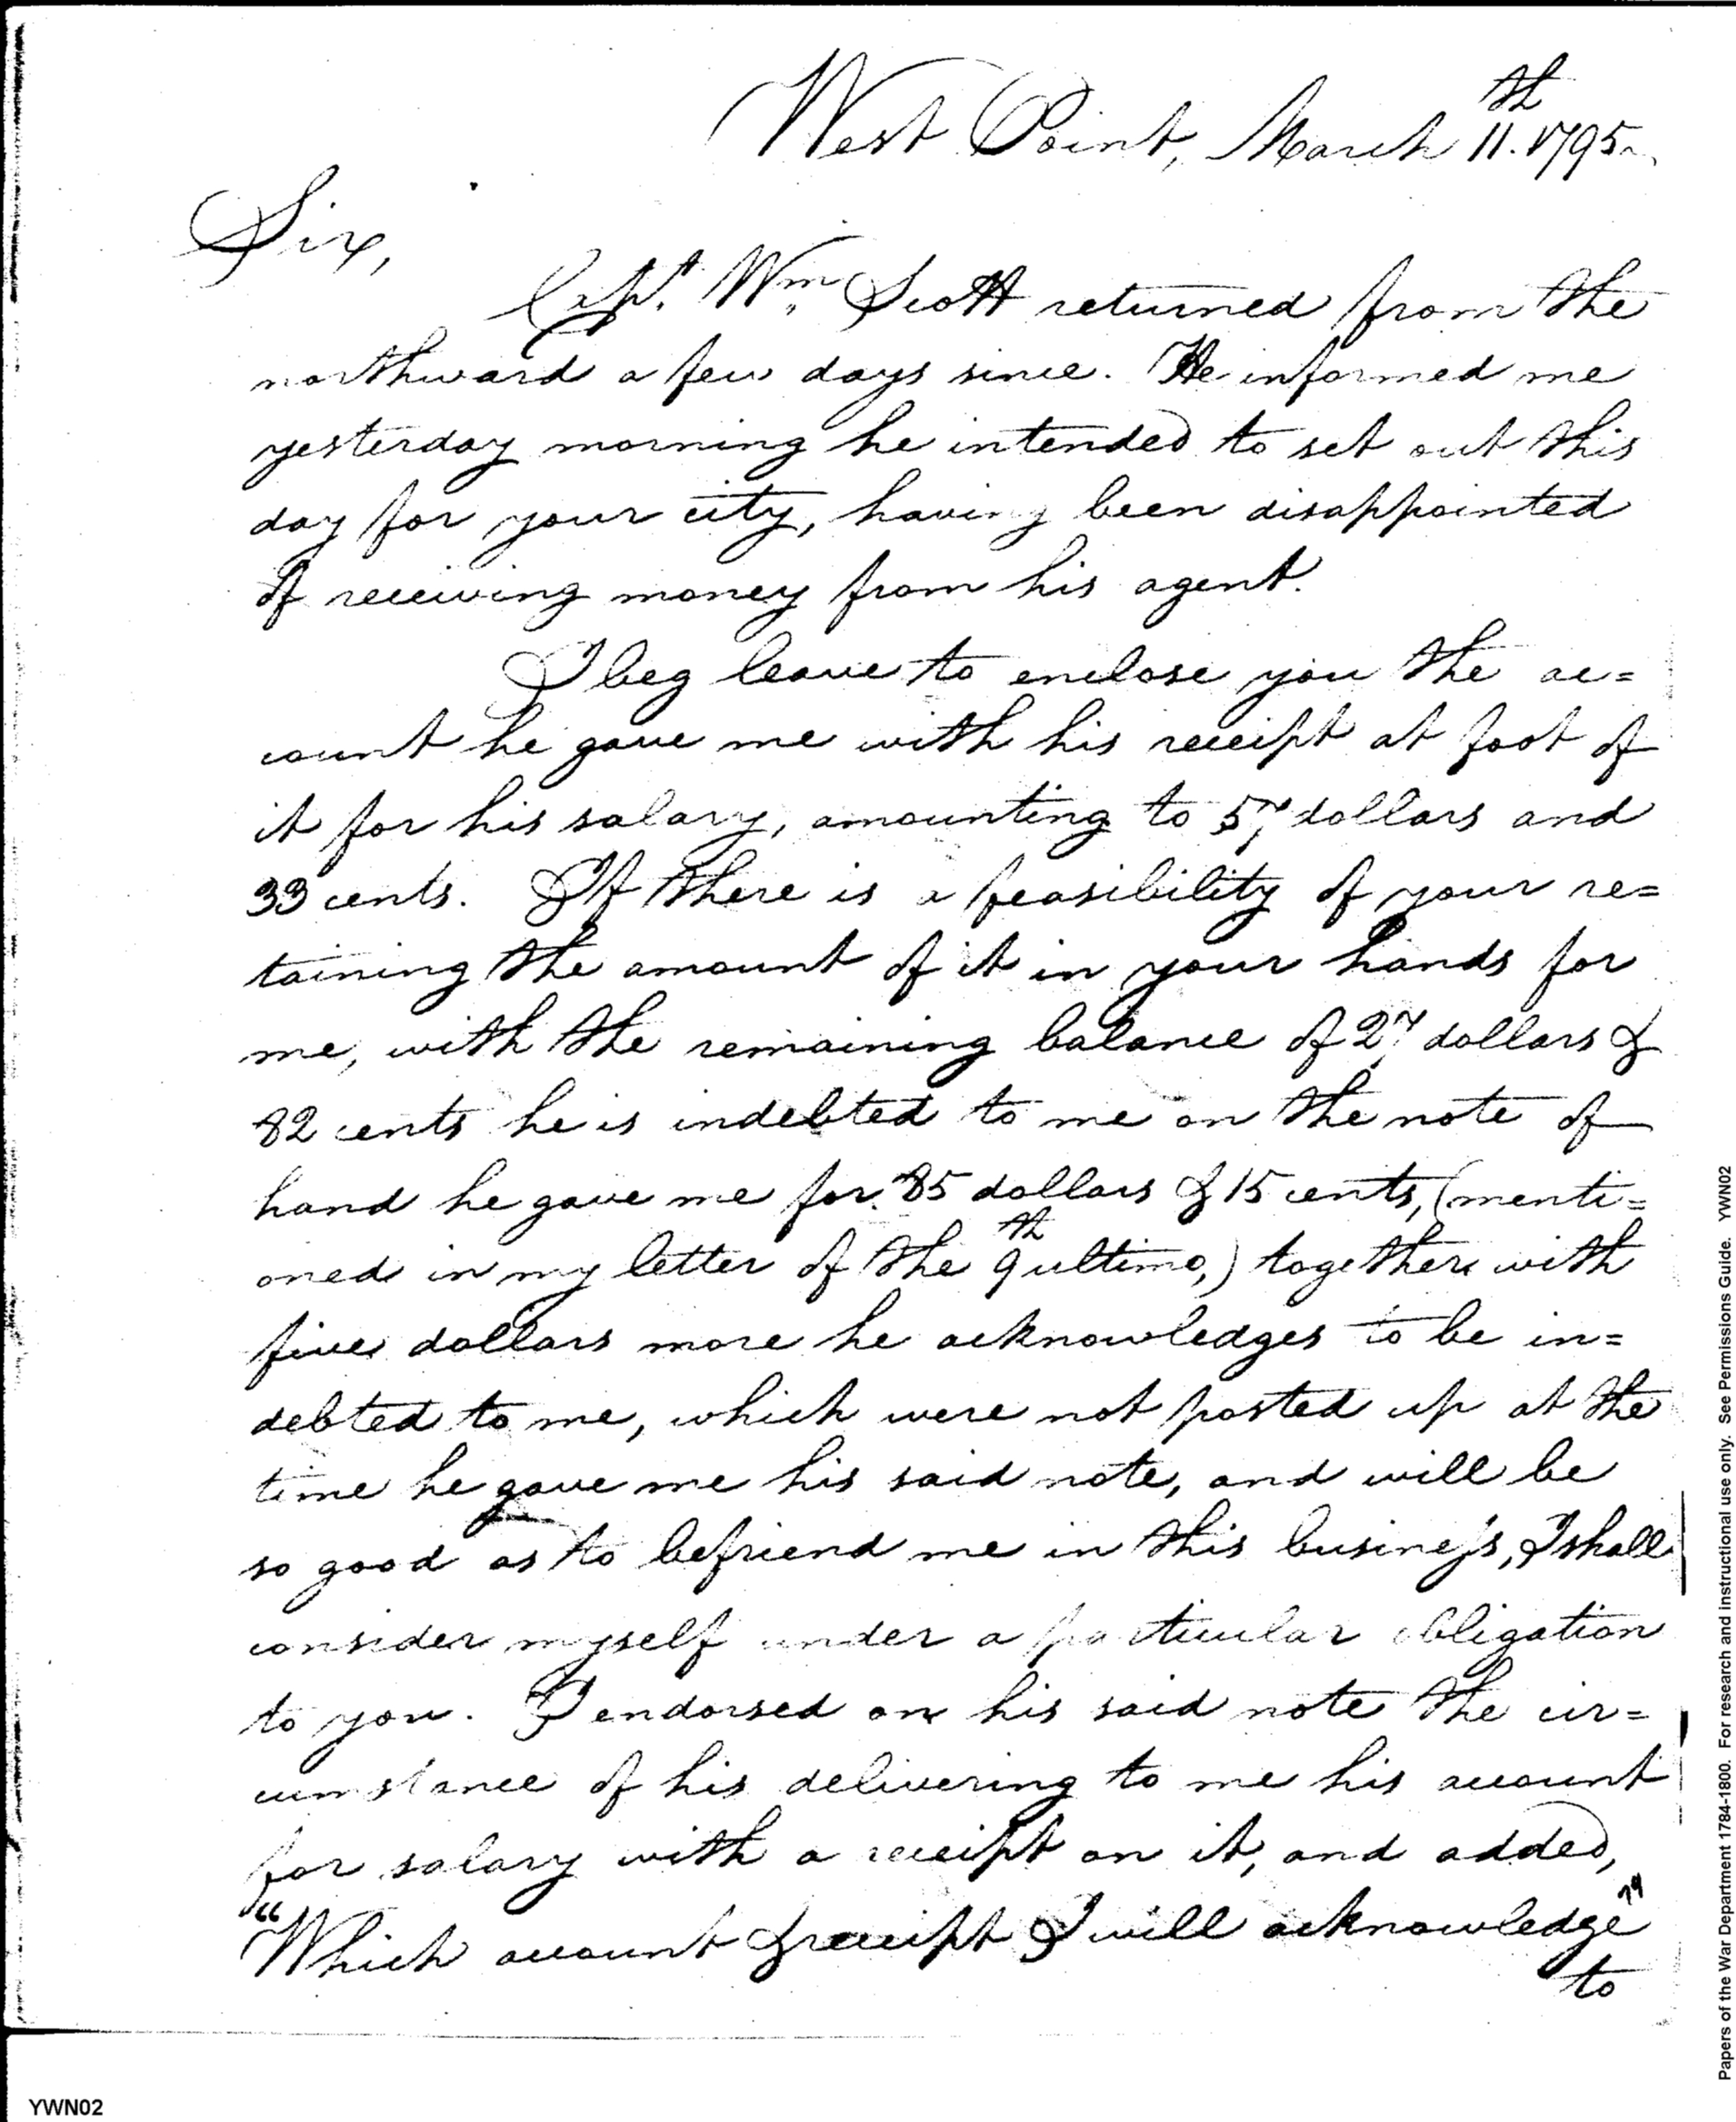 West Point, March 11.th 1795
Sir,
Capt. Wm. Scott returned from the
northward a few days since. He informed me
yesterday morning he intended to set out this
day for your city, having been disappointed
of receiving money from his agent.
I beg leave to enclose you the ac=
count he gave me with his receipt at foot of
it for his salary, amounting to 57 dollars and
33 cents. If there is a feasibility of your re=
taining the amount of it in your hands for
me, with the remaining balance of 27 dollars &
82 cents he is indebted to me on the note of
hand he gave me for 85 dollars & 15 cents, (menti=
oned in my letter of the 9th ultimo,) together with
five dollars more he acknowledges to be in=
debted to me, which were not posted up at the
time he gave me his said note, and will be
so good as to befriend me in this business, I shall
consider myself under a particular obligation
to you. I endorsed on his said note the cir=
cumstance of his delivering to me his account
for salary with a receipt on it, and added,
"Which account & receipt I will acknowledge"
to
YWN02
Papers of the War Department 1784-1800. For research and instructional use only. See Permissions Guide. YWN02